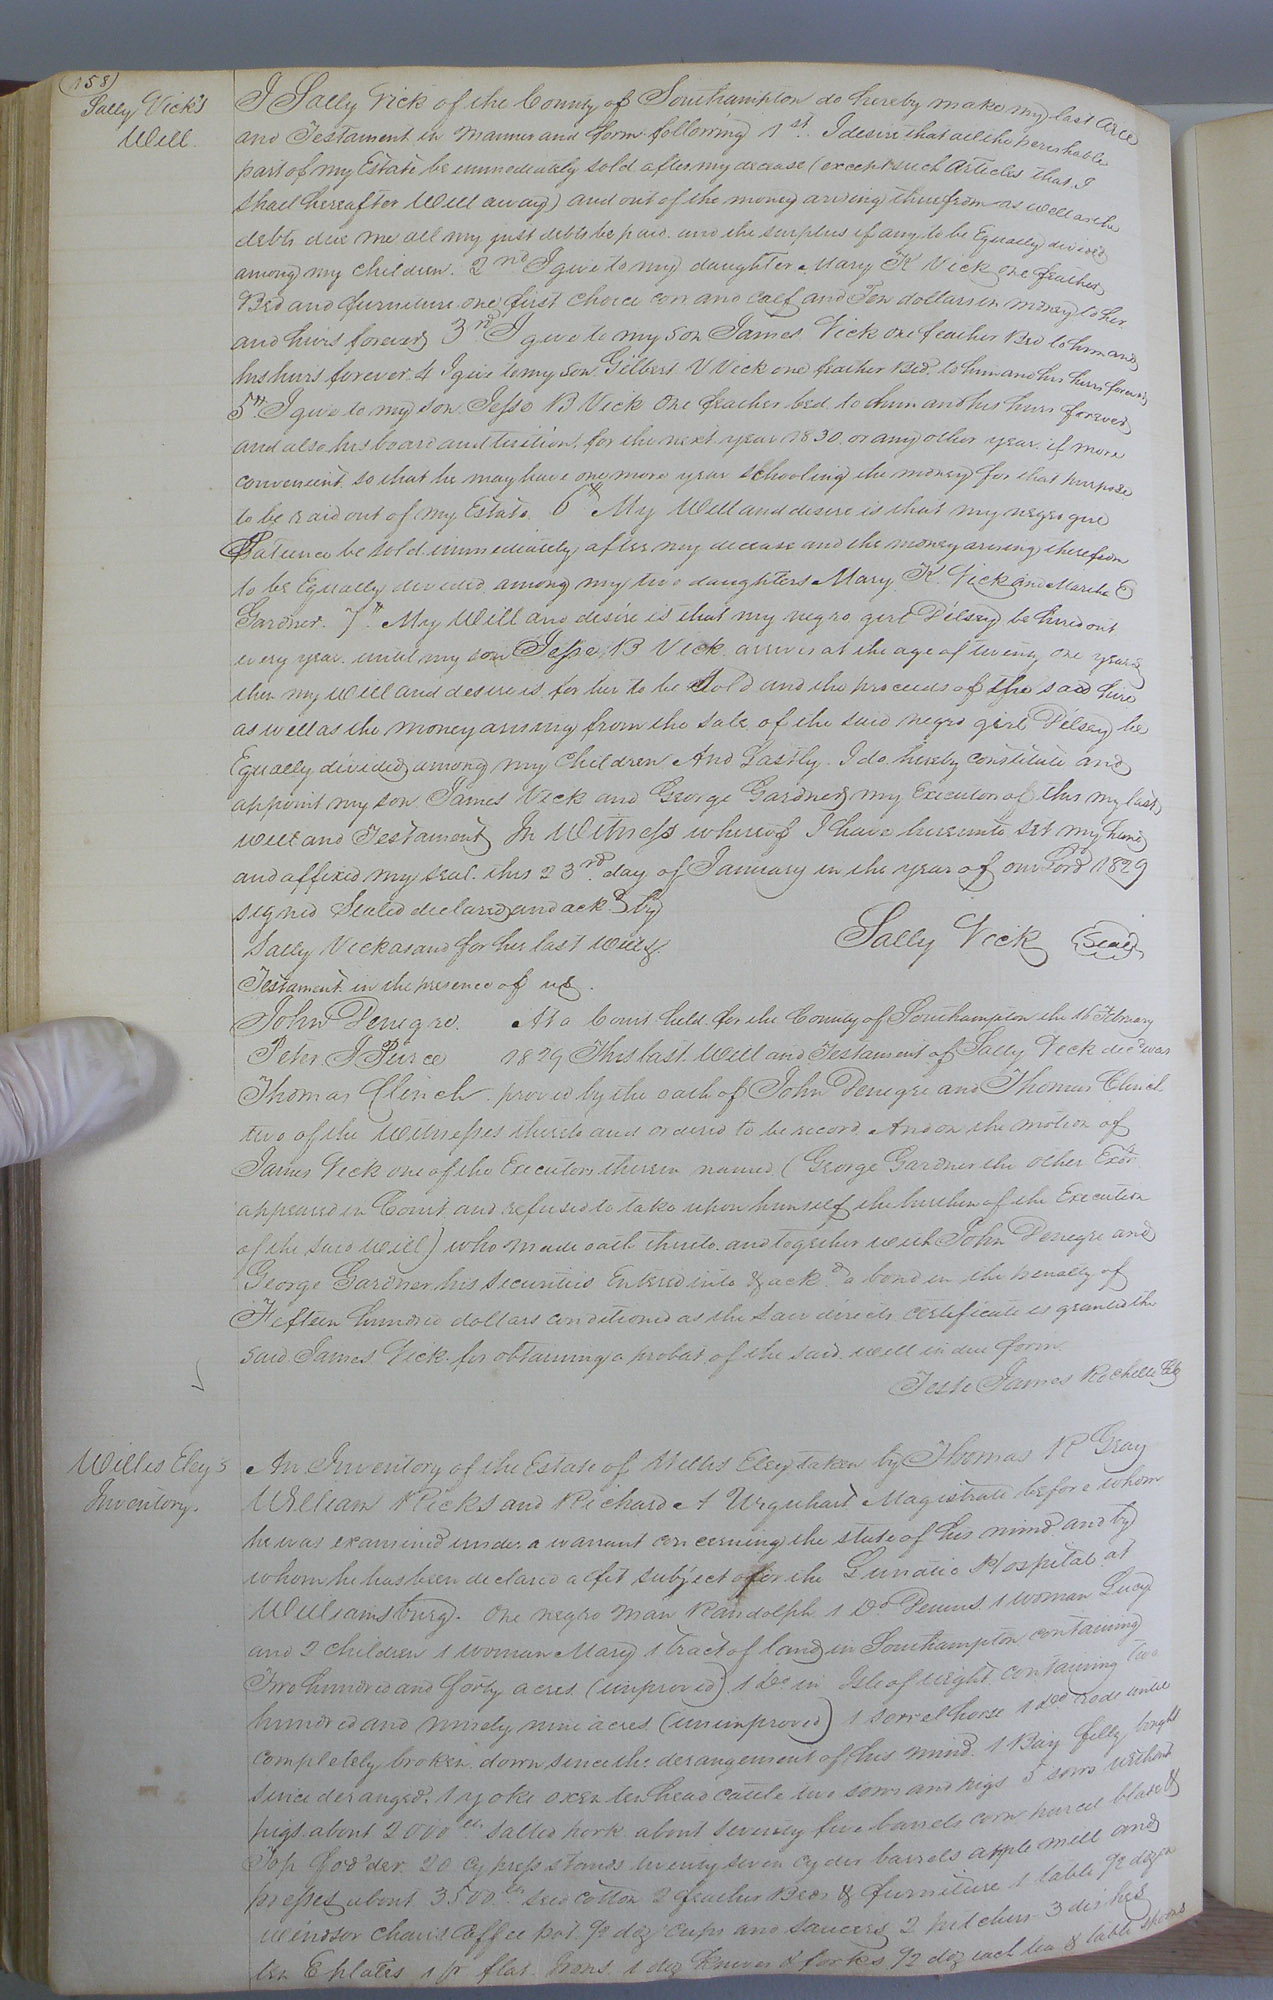 (158)
Sally Vick's
Will.
I Sally Vick of the County of Southampton do hereby make my last Will
and Testament in manner and form following 1st. I desire that all the perishable
part of my Estate be immediately sold after my decease (except such Articles that I
shall hereafter Will away) and out of the money arising therefrom as well as the
debts due me all my just debts be paid and the surplus if any to be Equally divided
among my children. 2nd I give to my daughter Mary K Vick one feather
Bed and furniture one first choice cow and calf and Ten dollars in money to her
and heirs forever 3rd I give to my son James Vick one feather Bed to him and
his heirs forever. 4 I give to my son Gilbert V Vick one feather Bed. to him and his heirs forever
5th I give to my son Jesse B Vick one feather bed to him and his heirs forever
and also his board and tuition for the next year 1830 or any other year if more
convenient so that he may have one more year schooling the money for that purpose
to be raid out of my Estate. 6th My Will and desire is that my negro girl
Patience be sold immediately after my decease and the money arising therefrom
to be Equally divided among my two daughters Mary K. Vick and Martha E
Gardner. 7th. My Will and desire is that my negro girl Pelsey be hired out
every year until my son Jesse B Vick arrives at the age of twenty one years
then my Will and desire is for her to be sold and the proceeds of the said hire
as well as the money arising from the sale of the said negro girl Pelsey be
Equally divided among my children And Lastly I do hereby constitute and
appoint my son James Vick and George Gardner my Executors of this my last
will and Testament In Witness whereof I have hereunto set my hand
and affixed my seal this 23rd. day of January in the year of our Lord 1829
signed Sealed declared and ackd by
Sally Vick as and for her last will &
Sally Vick (Seal)
Testament in the presence of us.
John Denegre. At a Court held for the County of Southampton the 16 February
Peter J Pierce 1829 This last Will and Testament of Sally Vick decd was
Thomas Clinch. proved by the oath of John Denegre and Thomas Clinch
two of the Witnesses thereto and ordered to be record And on the motion of
James Vick one of the Executors therein named (George Gardner the other Exor
appeared in Court and refused to take upon himself the burthen of the Execution
of the said will) who made oath thereto and together with John Denegre and
George Gardner his securities Entered into & ackd a bond in the penalty of
Fifteen hundred dollars conditioned as the Law directs certificate is granted the
said James Vick for obtaining a probat of the said will in due form.
Teste James Rochelle Clk
Willis Eley's
Inventory.
An Inventory of the Estate of Willis Eley taken by Thomas R Gray
William Ricks and Richard A Urquhart Magistrate before whom
he was examined under a warrant concerning the state of his mind and by
whom he has been declared a fit subject for the Lunatic Hospital at
Williamsburg. One negro man Randolph 1 Do Dennis 1 woman Lucy
and 2 children 1 woman Mary 1 tract of land in Southampton containing
Two hundred and forty acres (improved) 1 Do in Isle of wight containing two
hundred and ninety nine acres (unimproved) 1 sorrel horse 1 Do rode until
completely broken down since the derangement of his mind. 1 Bay filly bought
since deranged. 1 yoke oxen ten head cattle two sows and pigs 5 sows without
pigs about 2000 lbs salted pork about seventy five barrels corn parcel blade &
Top fodder. 20 cypress stands twenty seven cyder barrels apple mill and
presses about 3500 lbs seed cotton 2 feather Beds & furniture 1 table 1/2 dozen
windsor chairs Coffee pot 1/2 doz cups and saucers 2 pitchers 3 dishes
ten E plates 1 pr flat Irons. 1 doz knives & forks 1/2 doz each tea & table spoons